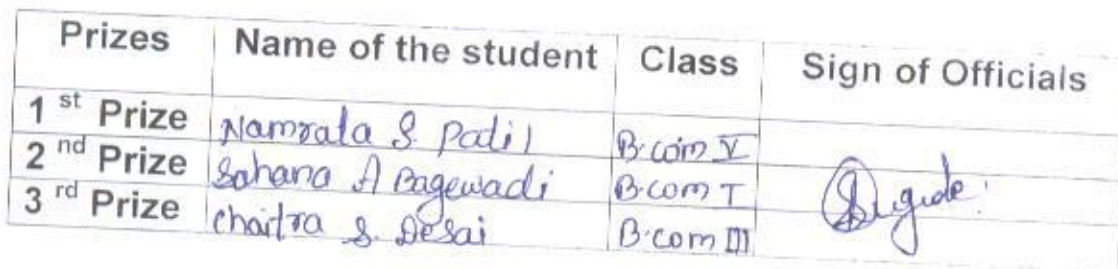 Prizes Name of the student Class Sign of Officials
1 st Prize Namrata S. Patil B.com V
2 nd Prize Sahana A Bagewadi B.com I
3 rd Prize Chaitra S. Desai B.com III